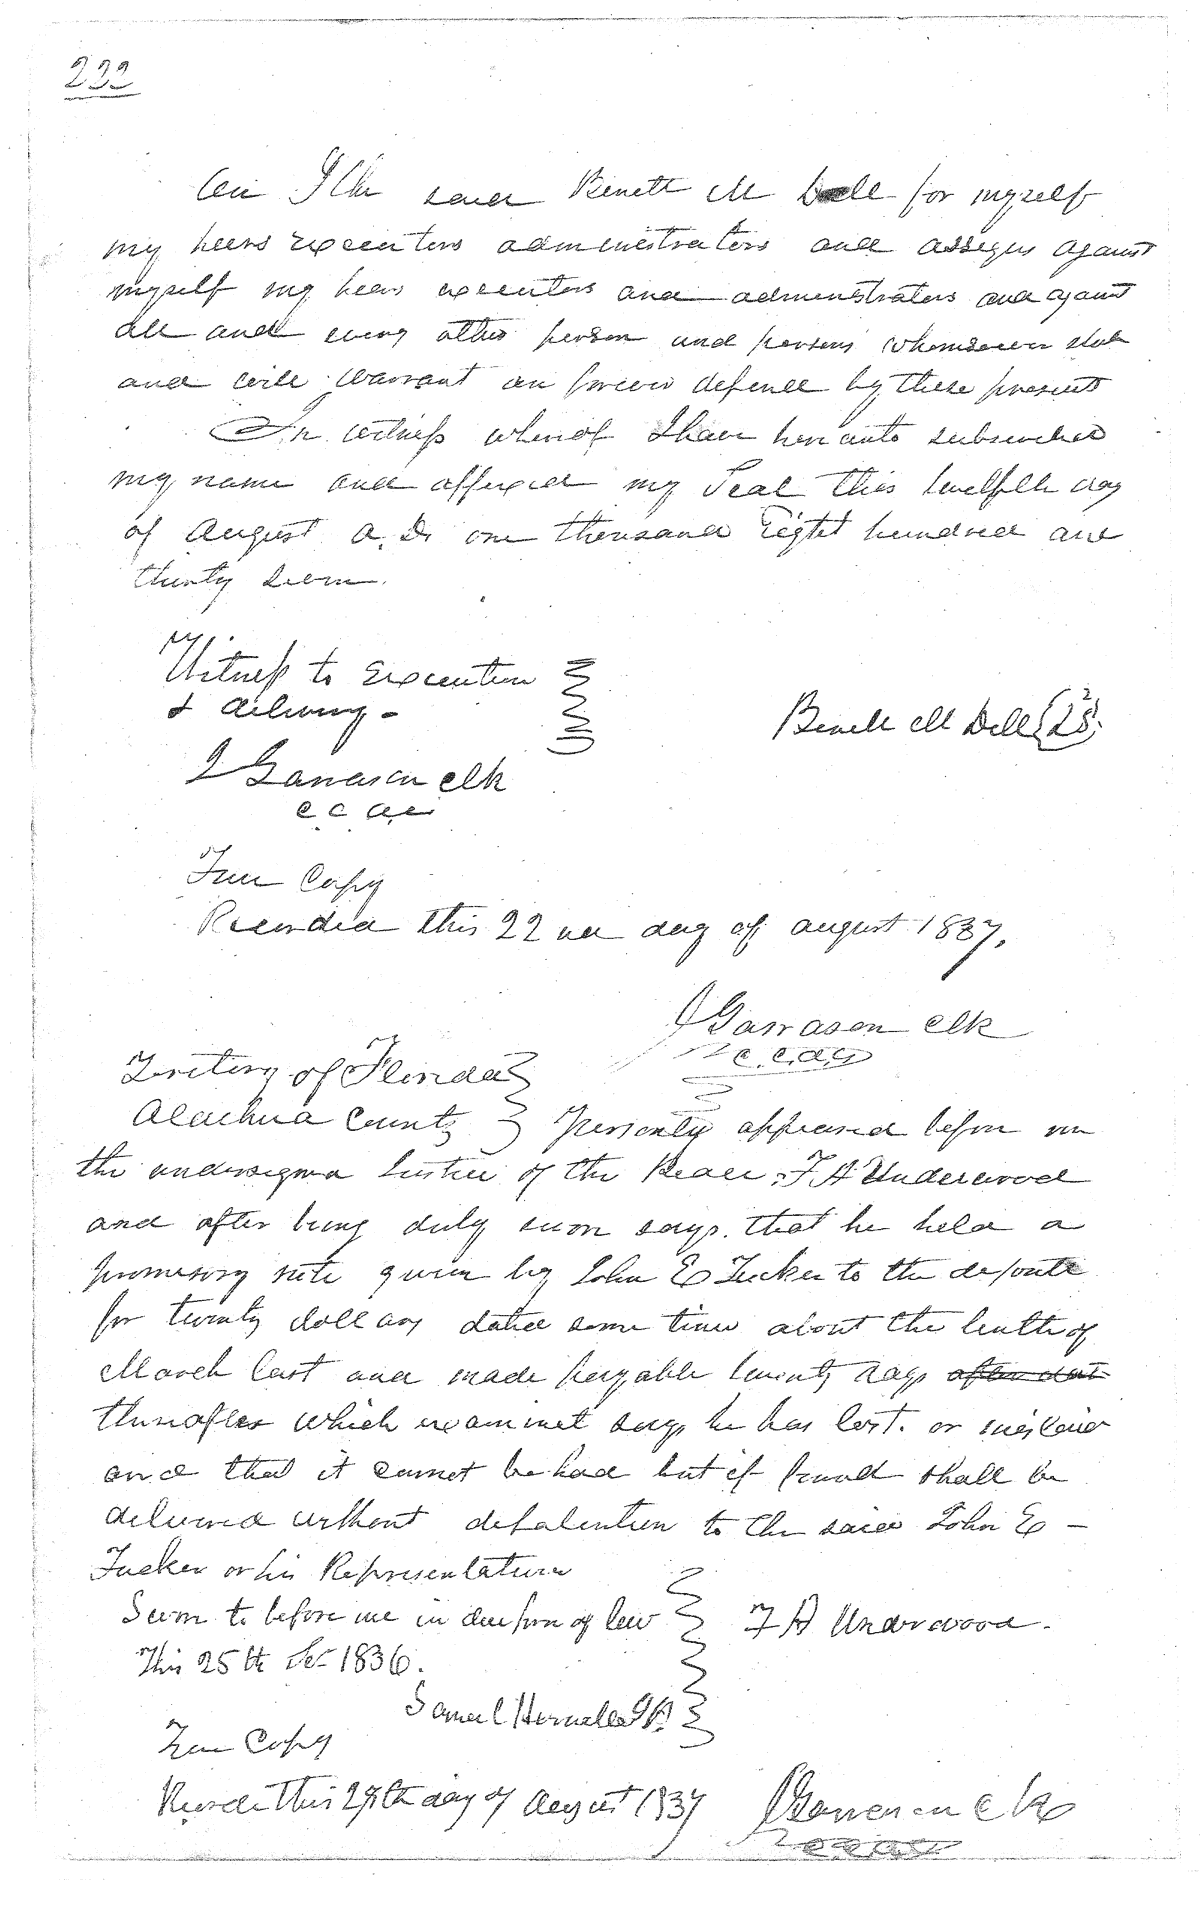 222
I the said Benett M Dell for myself
my heirs executors administrators and assigns against
myself my heirs executors and administrators and against
all and every other person and persons whomsoever shall
and will warrant an forever defend by these presents
In witness whereof I have hereunto subscribed
my name and affixed my Seal this twelfth day
of August A. D. one thousand Eight hundred and
thirty seven.
Witness to Execution
& delivery -
Benett M Dell
J Garrason clk
True Copy
Recorded this 22nd day of august 1837.
J Garrason Clk
Territory of Florida
Alachua County Personly appeared before me
the undersigned Justice of the Peace F A Underwood
and after being duly sworn says. that he held a
promisory note given by John E Tucker to the deponte
for twenty dollars dated some time about the tenth of
March last and made payable twenty days after date
thereafter which examinet says he has lost. or mislaid
and that it cannot be had but if found shall be
delivered without defalention to the said John E -
Tucker or his Representative
Sworn to before me in due form of law F A Underwood.
This 25th 1836.
Samuel JP
True Copy
Recorded this 29th day of August 1837 J Garrason clk